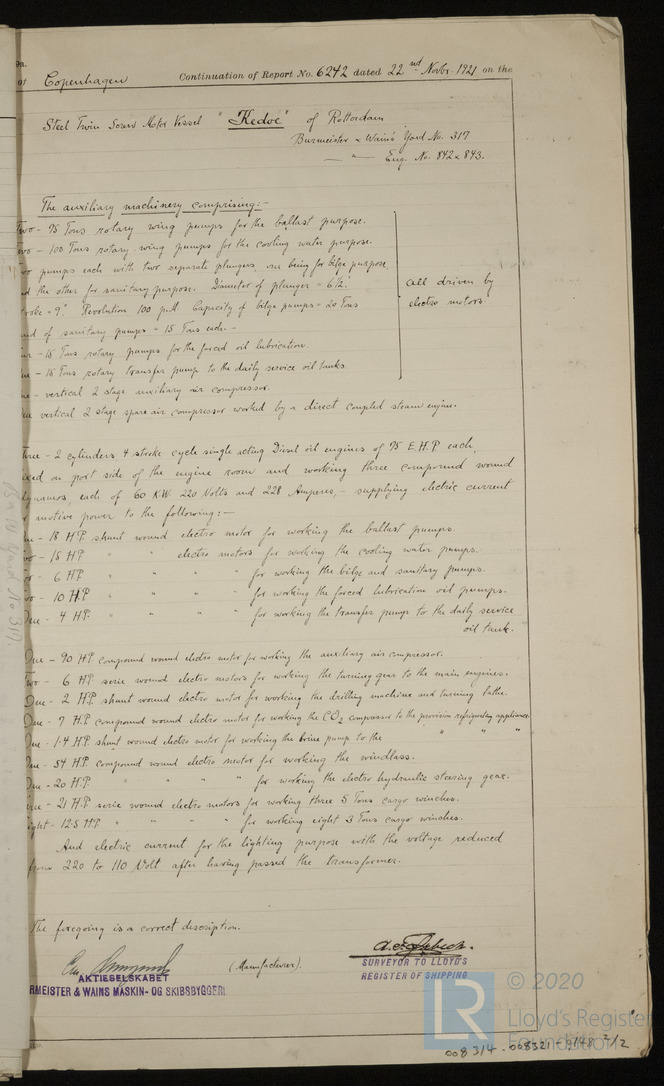 Copenhagen Continuation of Report No. 6242 dated 22nd Novbr. 1921 on the
Steel Twin Screw Motor Vessel "Kedoe" of Rotterdam
Burmeister & Wain's Yard No. 317
— " — Eng. No. 842 & 843.
The auxiliary machinery comprising:-
Two - 75 Tons rotary wing pumps for the ballast purpose.
wo - 100 Tons rotary wing pumps for the cooling water purpose.
wo pumps each with two separate plungers, one being for bilge purpose,
d the other for sanitary purpose. Diameter of plunger - 6½".
roke - 9" Revolution 100 p.M. Capacity of bilge pumps - 20 Tons
nd of sanitary pumps - 15 Tons each.-
- 15 Tons rotary pumps for the forced oil lubrication.
ne - 15 Tons rotary transfer pump to the daily service oil tanks
all driven by
electro motors.
ne - vertical 2 stage auxiliary air compressor.
ne vertical 2 stage spare air compressor worked by a direct coupled steam engine.
hree - 2 cylinders 4 stroke cycle single acting Diesel oil engines of 75 E.H.P. each,
on port side of the engine room and working three compound wound
dynamos, each of 60 K.W. 220 Volts and 228 Amperes, - supplying electric current
r motive power to the following:-
ne - 18 HP. shunt wound electro motor for working the ballast pumps.
wo - 18 HP " " electro motors for working the cooling water pumps.
- 6 HP. " " " " for working the bilge and sanitary pumps.
wo - 10 HP. " " " " for working the forced lubrication oil pumps.
ne - 4 HP. " " " " for working the transfer pump to the daily service
oil tank.
One - 90 HP. compound wound electro motor for working the auxiliary air compressor.
Two - 6 HP. serie wound electro motors for working the turning gear to the main engines.
One - 2 HP. shunt wound electro motor for working the drilling machine and turning lathe.
One - 7 HP compound wound electro motor for working the CO2 compressor to the provision refrigerating appliance.
One - 1.4 HP. shunt wound electro motor for working the brine pump to the " " "
One - 54 HP. compound wound electro motor for working the windlass.
One - 20 HP. " " " " for working the electro hydraulic steering gear.
hree - 21 HP. serie wound electro motors for working three 5 Tons cargo winches.
ight - 12.5 HP. " " " " for working eight 3 Tons cargo winches.
And electric current for the lighting purpose with the voltage reduced
from 220 to 110 Volt after having passed the transformer.
The foregoing is a correct description.
(Manufacturer).
AKTIESELSKABET
RMEISTER & WAINS MASKIN- OG SKIBSBYGGERI
SURVEYOR TO LLOYD'S
REGISTER OF SHIPPING
© 2020
Lloyd's Register
Foundation
LR
008314-008321-0148 2/2